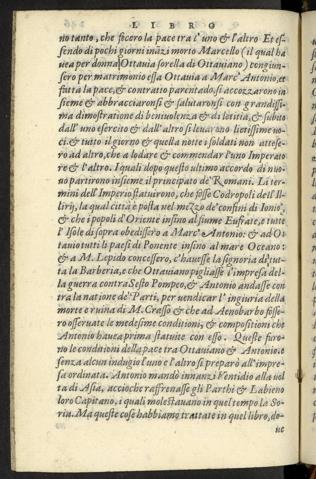 LIBRO
no tanto, che fecero la pace tra l' uno & l'altro Et es-
sendo di pochi giorni inãzi morto Marcello (il qual ha
uea per donna Ottauia sorella di Ottauiano) congiun-
sero per matrimonio essa Ottauia a Marc' Antonio, et
fatta la pace, & contratto parentado, si accozzarono in
sieme & abbracciaronsi & salutaronsi con grandissi-
ma dimostratione di beniuolenza & di letitia, & subito
dall'uno esercito & dall'altro si leuarono lietissime uo-
ci. & tutto il giorno & quella notte i soldati non attese-
ro ad altro, che a lodare & commendar l'uno Imperato
re & l'altro. I quali dopo questo ultimo accordo di nuo-
uo partirono insieme il principato de' Romani. Li ter-
mini dell'Imperio statuirono, che fosse Codropoli dell'Il-
liri, la qual città è posta nel mezzo de' confini di Ionio,
& che i popoli d'Oriente insino al fiume Eufrate, e tutte
l'Isole di sopra obedissero a Marc' Antonio: & ad Ot
tauio tutti li paesi di Ponente insino al mare Oceano:
& a M. Lepido concessero, c'hauesse la signoria di tut-
ta la Barberia, e che Ottauiano pigliasse l'impresa del-
la guerra contra Sesto Pompeo, & Antonio andasse con
tra la natione de' Parti, per uendicar l'ingiuria della
morte e ruina di M. Crasso & che ad Aenobarbo fosse-
ro osseruate le medesime conditioni, & compositioni che
Antonio hauea prima statuite con esso. Queste furo-
no le conditioni della pace tra Ottauiano & Antonio. e
senza alcun indugio l'uno e l'altro si preparò all'impre-
sa ordinata. Antonio mandò innanzi Ventidio alla uol
ta di Asia, accioche raffrenasse gli Parthi & Labieno
loro Capitano, i quali molestauano in quel tempo la So-
ria. Ma queste cose habbiamo trattate in quel libro, do-
ue